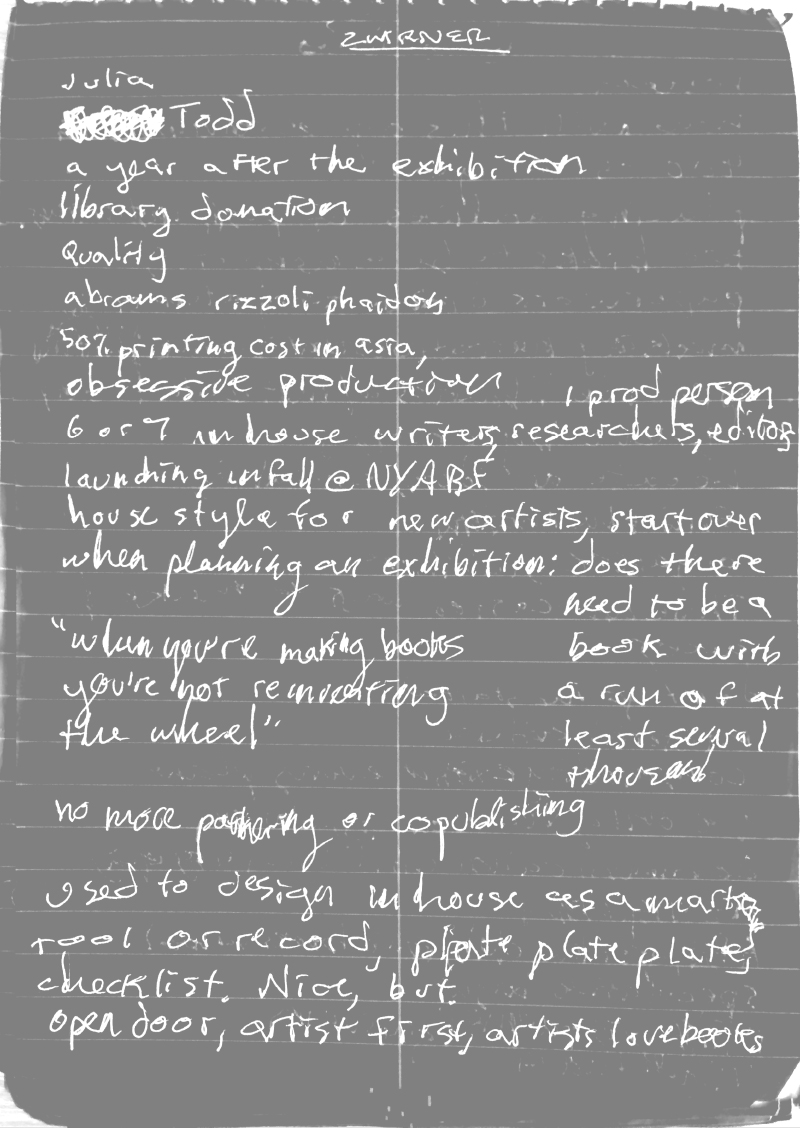 ZWIRNER
Julia
Todd
a year after the exhibition
library donation
Quality
abrams rizzoli phaidon
50% printing cost in asia,
obsessive production 1 prod person
6 or 7 in house writers, researchers, editors
launching in fall @ NYABF
house style for new artists, start over
when planning an exhibition: does there
need to be a
"when you're making books book with
you're not reinventing a run of at
the wheel" least several
thousand
no more partnering or copublishing
used to design in house as a
tool or record, plate plate plate,
checklist. Nice, but.
open door, artist first, artists love books